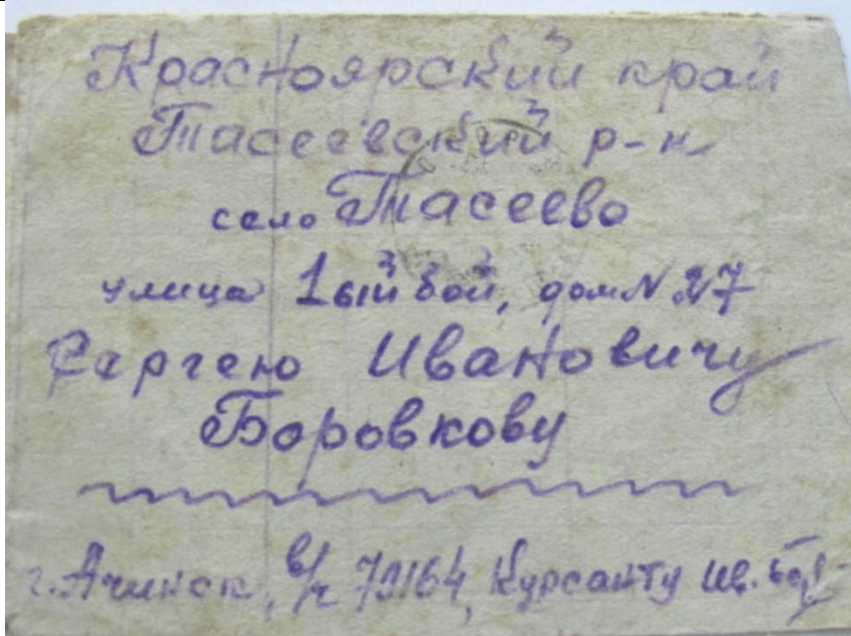 Красноярский край
Тасеевский р-н
село Тасеево
улица 1ый бой, дом N 27
Сергею Ивановичу
Боровкову
г. Ачинск, в/ч 74164, Курсанту Ив.